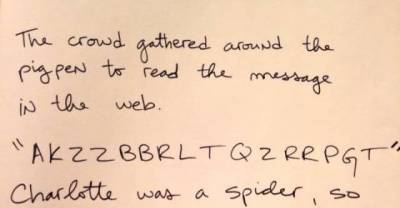 The crowd gathered around the
pigpen to read the message
in the web.
"AKZZBBRLTQZRRPGT"
Charlotte was a spider, so